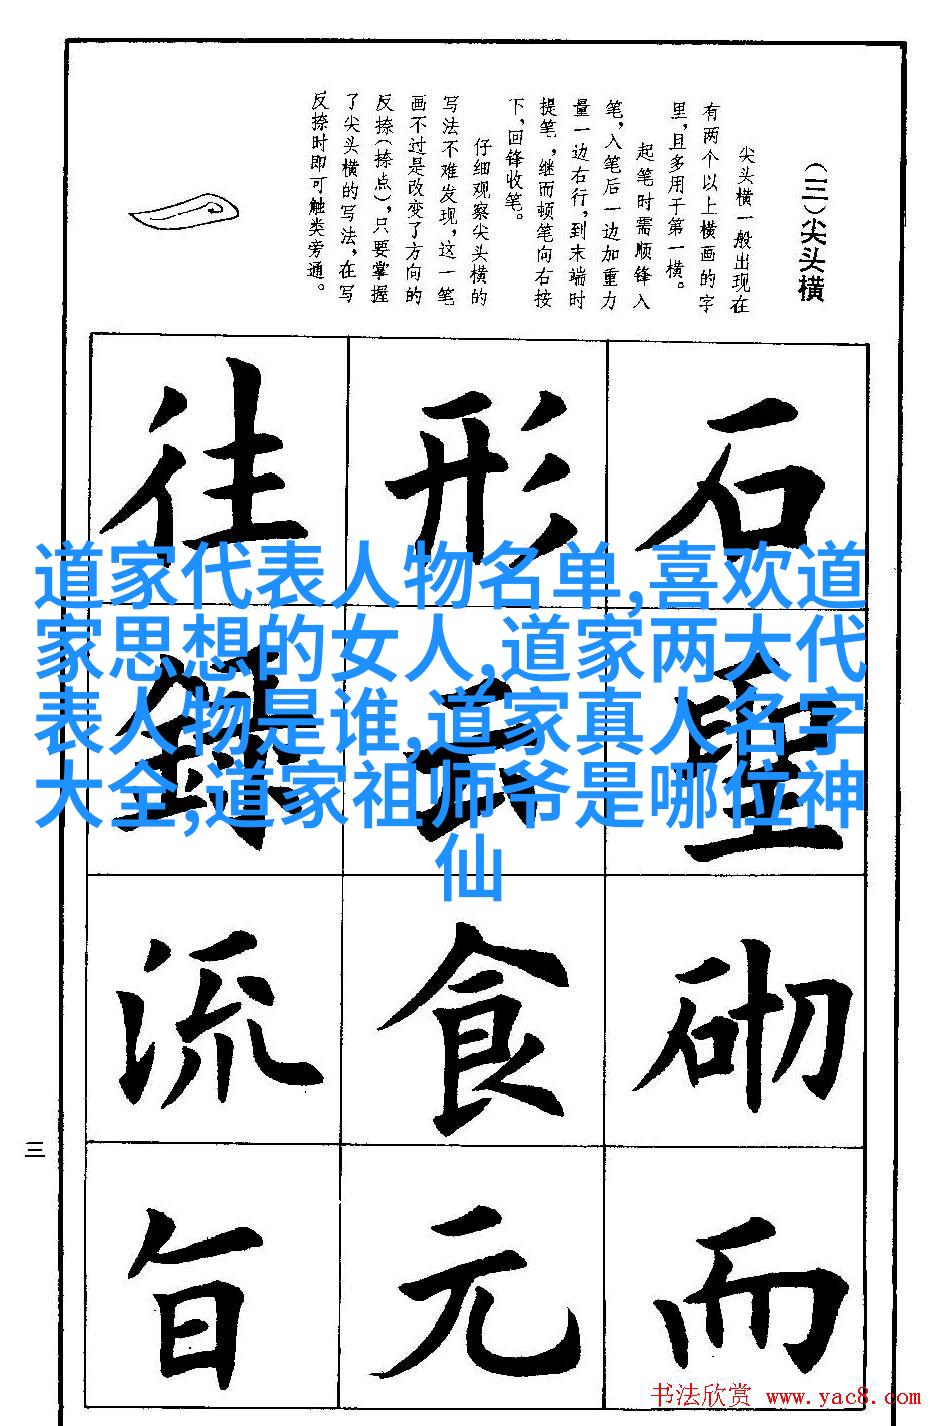 （三）尖头横
尖头横一般出现在
有两个以上横画的字
里，且多用于第一横。
起笔时需顺锋入
笔，入笔后一边加重力
量一边右行，到末端时
提笔，继而顿笔向右按
下，回锋收笔。
仔细观察尖头横的
写法不难发现，这一笔
画不过是改变了方向的
反捺（捺点），只要掌握
了尖头横的写法，在写
反捺时即可触类旁通。
石
形
往
道家代表人物名单,喜欢道
家思想的女人,道家两大代
表人物是谁,道家真人名字
大全,道家祖师爷是哪位神
仙
云
砌
食
流
而
元
旨
三
书法欣赏 www.yac8.com